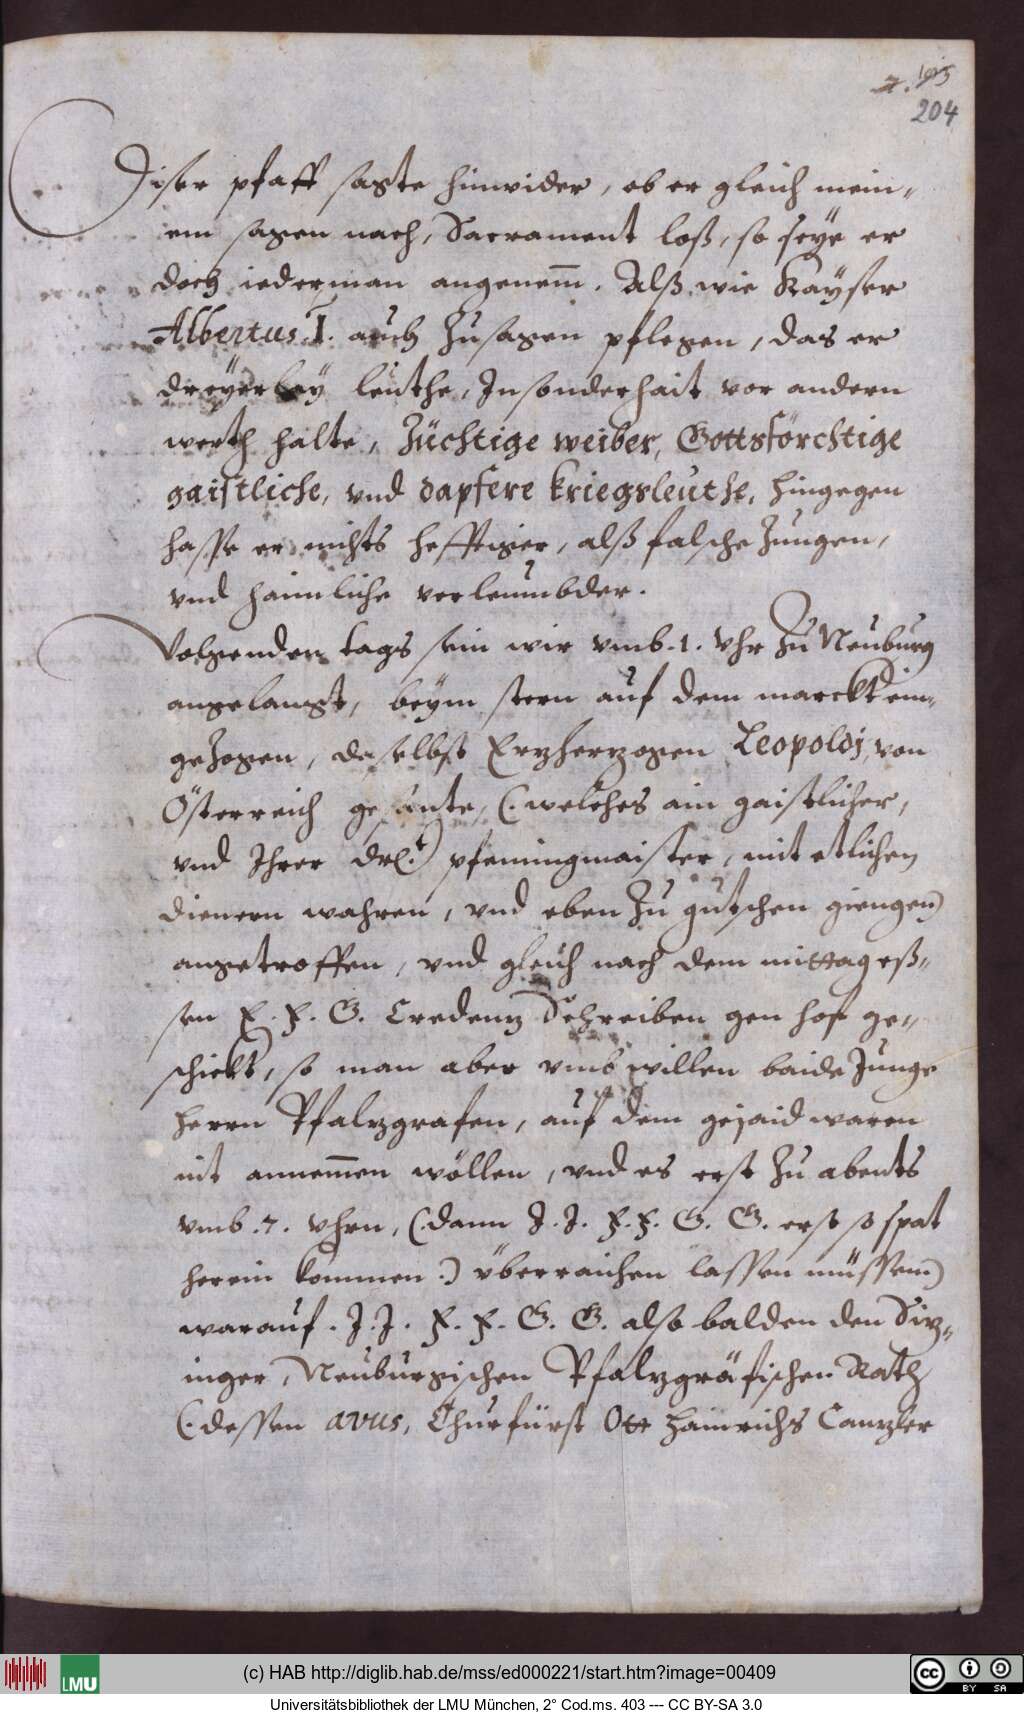 204
Diser pfaff sagte hinwider, ob er gleich mein-
em sagen nach, Sacrament loß, so seye er
doch iederman angenem̅. Alß wie Kayser
Albertus I. auch zusagen pflegen, das er
dreyerley leuthe, Insonderhait vor andern
werth halte, Züchtige weiber, Gottsförchtige
gaistliche, vnd dapfere kriegsleuthe, hingegen
hasse er nichts hefftiger, alß falsche Zungen,
vnd haimliche verleumbder.
Volgenden tags sein wir vmb .1. vhr zu Neuburg
angelangt, beÿm stern auf dem marckt ein-
gezogen, daselbst Erzherzogen Leopoldj, von
Österreich gesante, (: welches ain gaistlicher,
vnd Ihrer drl:t pfenningmaister, mit etlichen
dienern wahren, vnd eben zu gutschen giengen)
angetroffen, vnd gleich nach dem mittag eß-
sen E. F. G. Credenz Schreiben gen hof ge-
schickt, so man aber vmb willen baide Junge
herrn Pfalzgrafen, auf dem gejaid waren
nit annem̅en wöllen, vnd es erst zu abents
vmb .7. vhrn, (: dann J. J. F. F. G. G. erst so spat
herein kommen :) überraichen lassen müssen)
warauf . J. J. F. F. G. G. also balden den Siz-
inger, Neuburgischen Pfalzgräfischen Rath
(: dessen avus, Churfürst Ott Hainrichs Canzler
(c) HAB http://diglib.hab.de/mss/ed000221/start.htm?image=00409
LMU
cc BY SA
Universitätsbibliothek der LMU München, 2° Cod.ms. 403 --- CC BY-SA 3.0